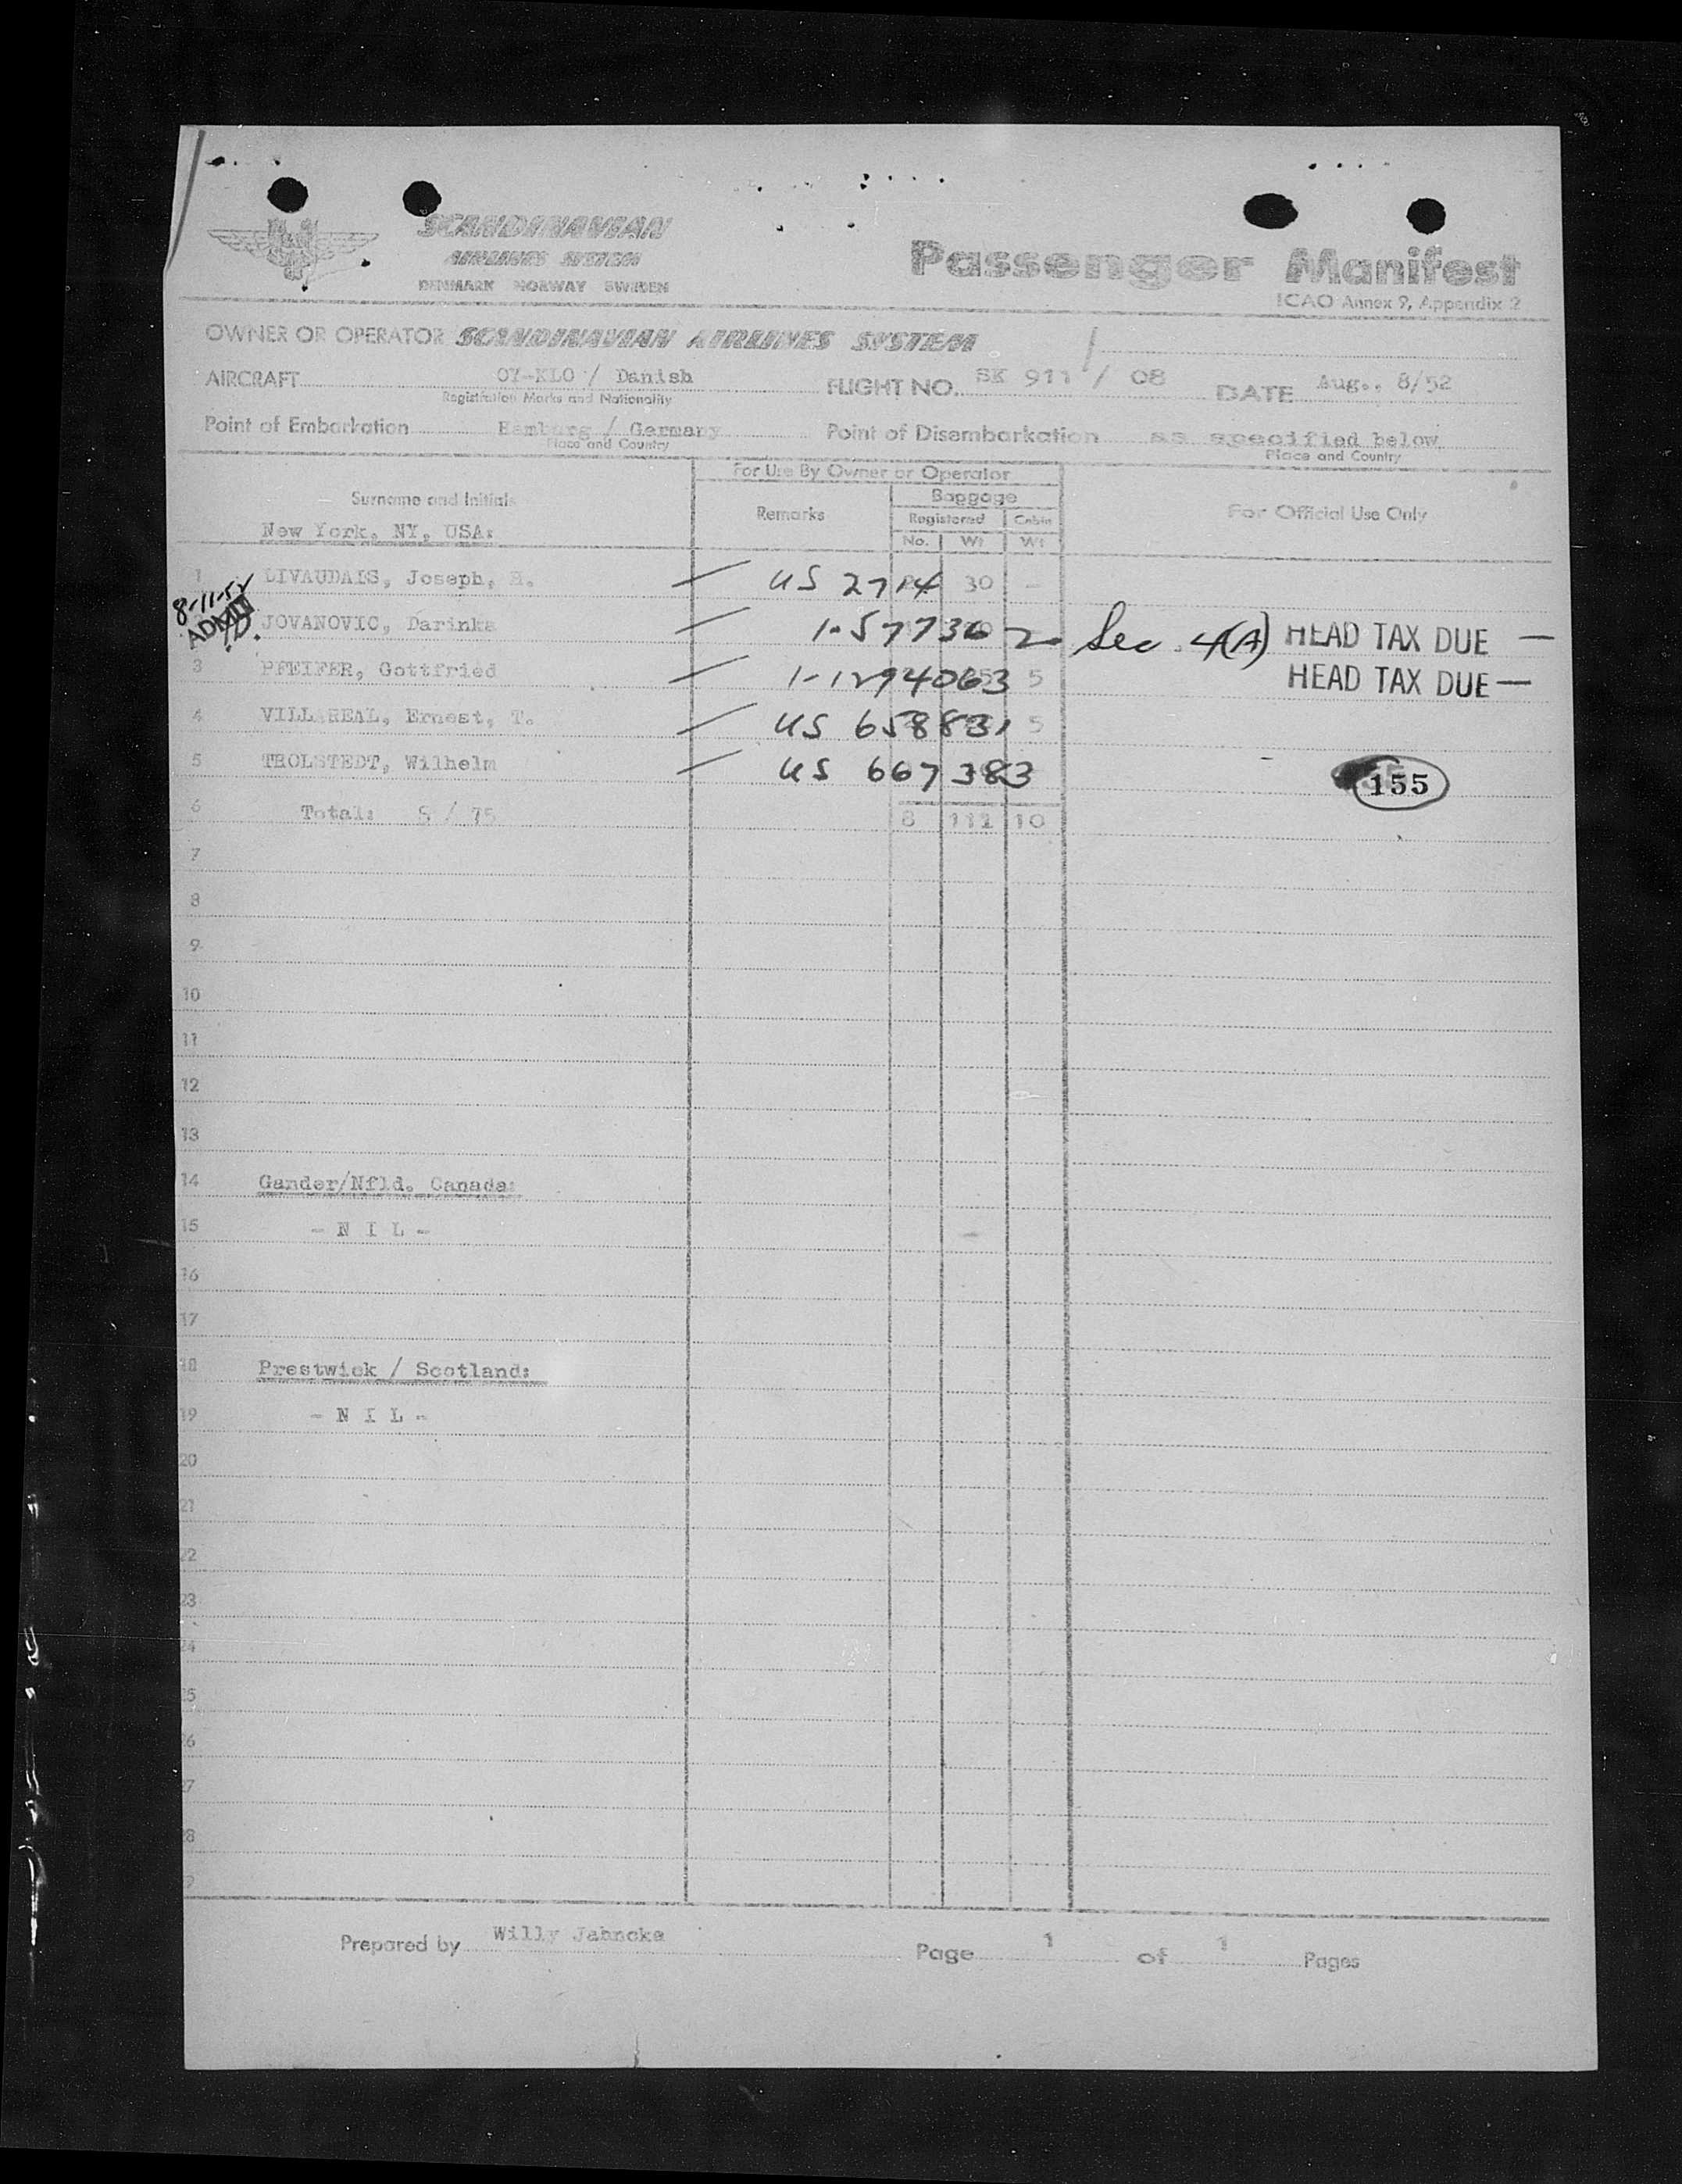 SCANDINAVIAN
AIRLINES SYSTEM
DENMARK NORWAY SWEDEN
Passenger Manifest
ICAO Annex 9, Appendix 2
OWNER OR OPERATOR SCANDINAVIAN AIRLINES SYSTEM
AIRCRAFT OY-KLO / Danish FLIGHT NO. SK 911 / 08 DATE Aug., 8/52
Registration Marks and Nationality
Point of Embarkation Hamburg / Germany Point of Disembarkation as specified below
Place and Country Place and Country
For Use By Owner or Operator
Surname and Initials Remarks Baggage For Official Use Only
Registered Cabin
New York, NY, USA: No. Wt Wt
1 LIVAUDAIS, Joseph, H. US 2714 30 -
8-11-52
ADMIT
JOVANOVIC, Darinka 1-577362 Sec. 4(A) HEAD TAX DUE —
3 PFEIFER, Gottfried 1-1294063 5 HEAD TAX DUE —
4 VILLAREAL, Ernest, T. US 658831 5
5 TROLSTEDT, Wilhelm US 667383 155
6 Total: 5 / 75 8 111 10
7
8
9
10
11
12
13
14 Gander/Nfld. Canada:
15 - N I L -
16
17
18 Prestwick / Scotland:
19 - N I L -
20
21
22
23
24
25
26
27
28
Prepared by Willy Jahncke Page 1 of 1 Pages